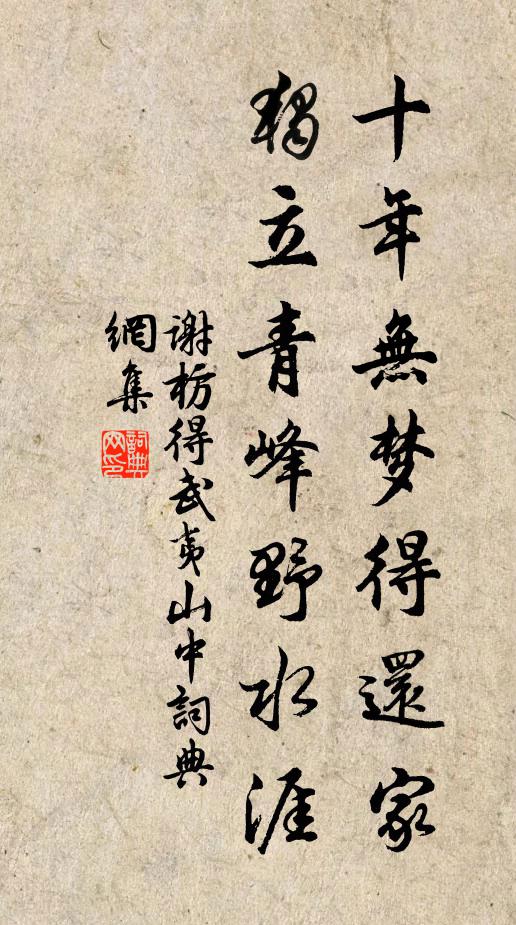 十年無梦得還家
獨立青峰野水涯
謝枋得武夷山中詞典
網集
詞典網印